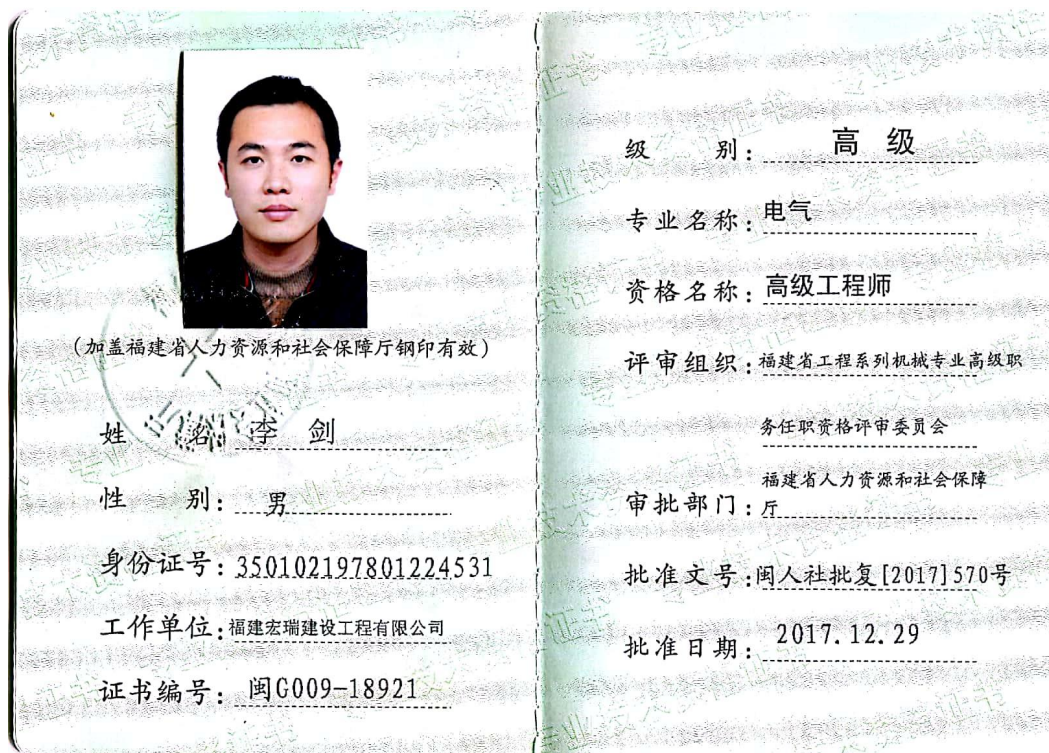 (加盖福建省人力资源和社会保障厅钢印有效)
姓 名: 李 剑
性 别: 男
身份证号: 350102197801224531
工作单位: 福建宏瑞建设工程有限公司
证书编号: 闽G009-18921
级 别: 高 级
专业名称: 电气
资格名称: 高级工程师
评审组织: 福建省工程系列机械专业高级职
务任职资格评审委员会
福建省人力资源和社会保障
审批部门: 厅
批准文号: 闽人社批复[2017]570号
批准日期: 2017.12.29